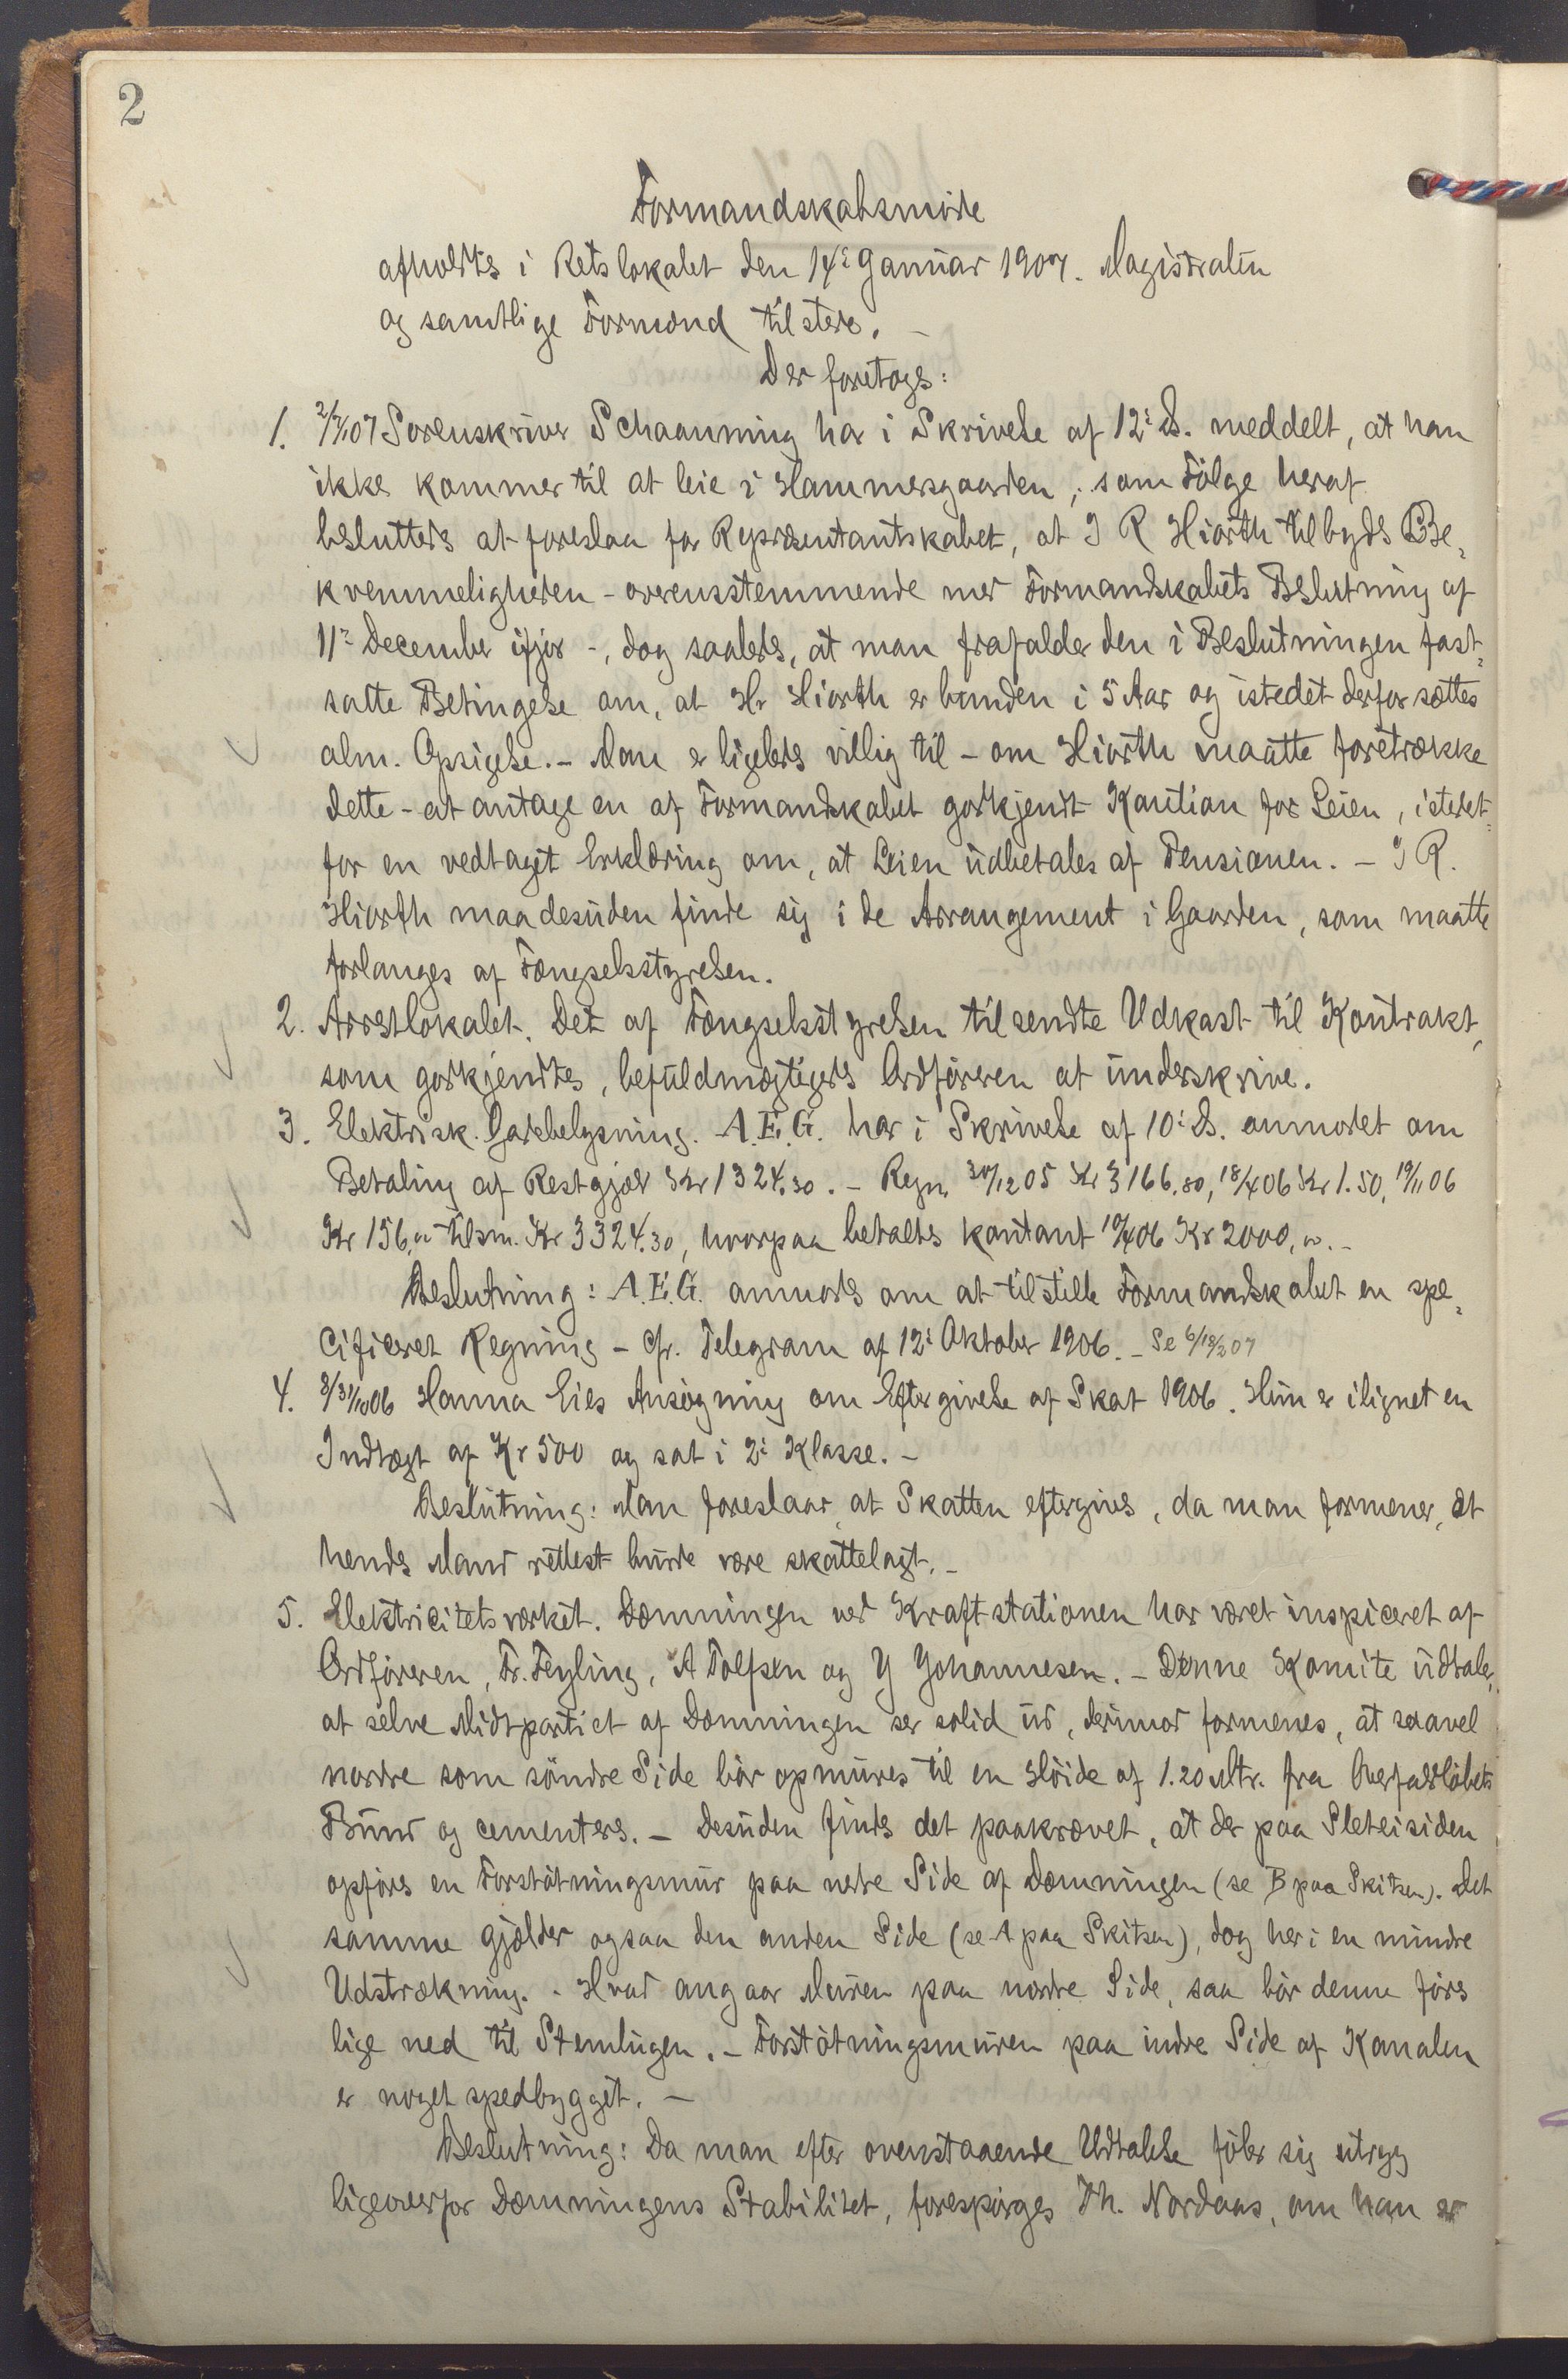 2
Formandskabsmöde
afholdtes i Retslokalet den 14: Januar 1907. Magistraten
og samtlige Formænd tilstede. –
Der foretoges:
1. 2/7/1 07 Sorenskriver Schaanning har i Skrivelse af 12: ds. meddelt, at han
ikke kommer til at leie i Hammersgaarden; som Fölge heraf
besluttedes at foreslaa for Repræsentantskabet, at I R Hiorth tilbydes Be-
kvemmeligheden – overensstemmende med Formandskabets Beslutning af
11: December ifjor –, dog saaledes, at man frafalder den i Beslutningen fast-
satte Betingelse om, at Hr Hiorth er bunden i 5 Aar og istedet derfor sættes
alm. Opsigelse. – Man er ligeledes villig til – om Hiorth maatte foretrække
dette – at antage en af Formandskabet godkjendt Kaution for Leien, istedet-
for en vedtaget Erklæring om, at Leien udbetales af Pensionen. – I R.
Hiorth maa desuden finde sig i de Arrangement i Gaarden, som maatte
forlanges af Fængselsstyrelsen.
2. Arrestlokalet. Det af Fængselsstyrelsen tilsendte Udkast til Kontrakt,
som godkjendtes, befuldmægtigedes Ordföreren at underskrive.
3. Elektrisk Gadebelysning. A.E.G. har i Skrivelse af 10: ds. anmodet om
Betaling af Restgjæld Kr 1324.30. – Regn. 30/12 05 Kr 3166.80, 18/4 06 Kr 1.50, 19/11 06
Kr 156.00 tilsm. Kr 3324.30, hvorpaa betaltes kontant 19/4 06 Kr 2000,00. –
Beslutning: A.E.G. anmodes om at tilstille Formandskabet en spe-
cificeret Regning – cfr. Telegram af 12: Oktober 1906. – Se 6/18/2 07
4. 8/31/10 06 Hanna Eies Ansögning om Eftergivelse af Skat 1906. Hun er ilignet en
Indtægt af Kr 500 og sat i 2: Klasse. –
Beslutning: Man foreslaar, at Skatten eftergives, da man formener, at
hendes Mand rettest burde være skattelagt. –
5. Elektricitetsværket. Dæmningen ved Kraftstationen har været inspiceret af
Ordföreren, Fr. Feyling, A Tollefsen og Y Yohannesen. – Denne Komite udtaler,
at selve Midtpartiet af Dæmningen ser solid ud, derimod formenes, at saavel
nordre som söndre Side bör opmures til en Höide af 1.20 Mtr. fra Overfaldlöbets
Bund og cementeres. – Desuden findes det paakrævet, at der paa Sleteisiden
opföres en Forstötningsmur paa nedre Side af Dæmningen (se B paa Skitsen). Det
samme gjælder ogsaa den anden Side (se A paa Skitsen), dog her i en mindre
Udstrækning. – Hvad angaar Muren paa nordre Side, saa bör denne föres
lige ned til Stemlugen. – Forstötningsmuren paa indre Side af Kanalen
er noget spedbygget. –
Beslutning: Da man efter ovenstaaende Udtalelse föler sig utryg
ligeoverfor Dæmningens Stabilitet, forespörges Th. Nordaas, om han er